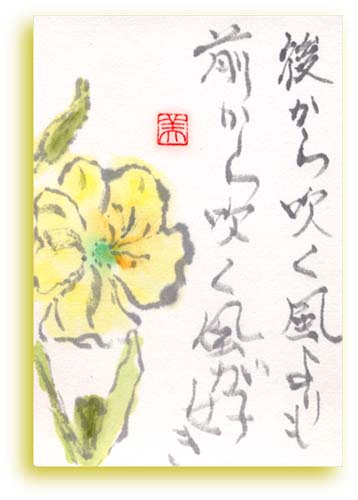 後から吹く風よりも
前から吹く風が好き
美